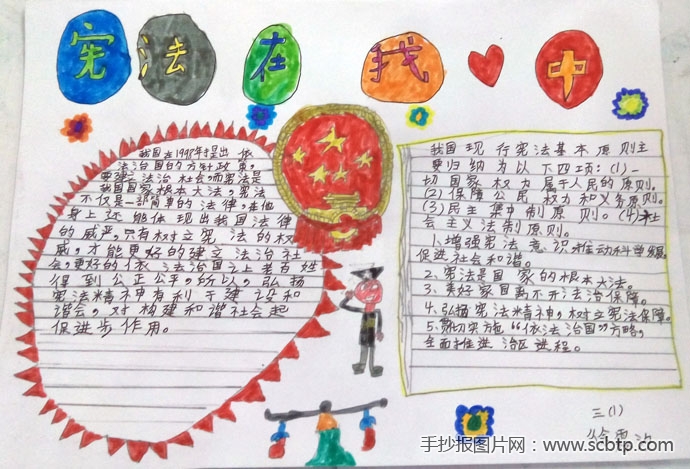 宪法在我中
我国在1997年提出依
法治国的方针政策,
要建立法治社会而宪法是
我国国家根本大法,宪法
不仅是一部简单的法律,在他
身上还能体现出我国法律
的威严,只有树立宪法的权
威,才能更好的建立法治社
会,更好的依法治国让老百姓
得到公正公平,所以,弘扬
宪法精神有利于建设和
谐会,对构建和谐社会起
促进步作用。
我国现行宪法基本原则主
要归纳为以下四项:(1)一
切国家权力属于人民的原则。
(2)保障公民权力和义务原则。
(3)民主集中制原则。(4)社
会主义法制原则。
1.增强宪法意识推动科学发展
促进社会和谐。
2.宪法是国家的根本大法。
3.美好家园离不开法治保障。
4.弘扬宪法精神,树立宪法保障。
5.贯切实施“依法治国”方略,
全面推进治区进程。
三(1)
手抄报图片网:www.scbtp.com